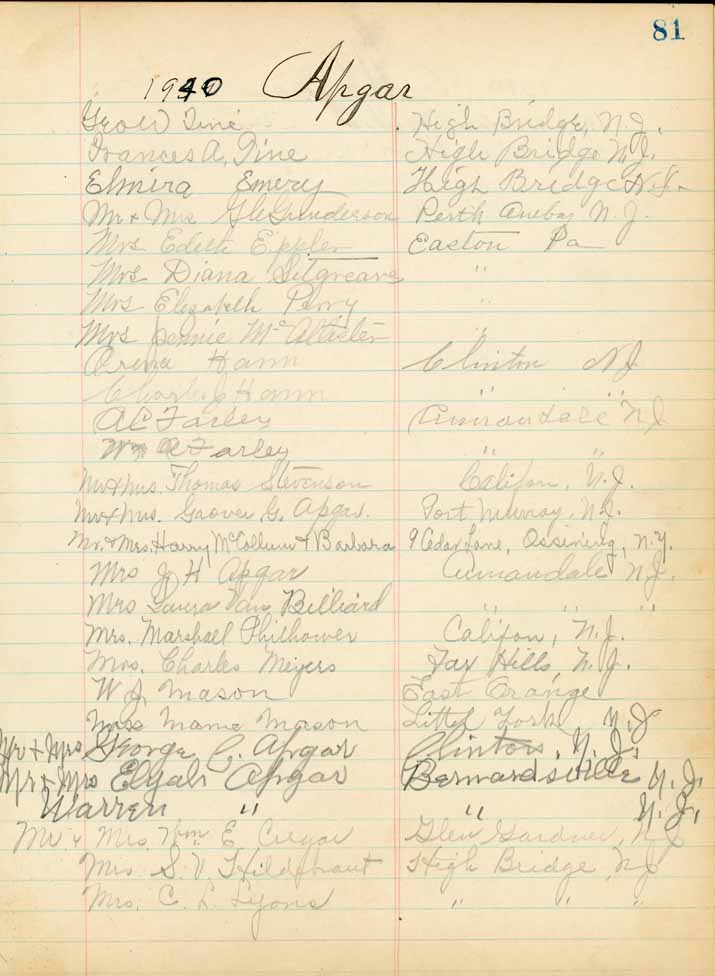 81
1940 Apgar
Geo W Tine High Bridge, N.J.
Frances A. Tine High Bridge N.J.
Elmira Emery High Bridge N.J.
Mr & Mrs Gunderson Perth Amboy N.J.
Mrs Edith Eppler Easton Pa
Mrs Diana Sitgreave "
Mrs Elizabeth Perry "
Mrs Jennie McAlister "
Orena Hann Clinton NJ
Charles J Hann " "
A C Farley Annandale NJ
Wm A Farley " "
Mr & Mrs. Thomas Stevenson Califon, N.J.
Mr & Mrs. Groover G. Apgar. Port Murray, N.J.
Mr. & Mrs. Harry McCollum & Barbara 9 Cedar Lane, Ossining, N.Y.
Mrs J H Apgar Annandale N.J.
Mrs Laura Van Billiard " " "
Mrs. Marshall Philhower Califon, N.J.
Mrs. Charles Meyers Far Hills N.J.
W J Mason East Orange
Mrs Mame Mason Little York N.J
Mr & Mrs George C. Apgar Clinton, N.J.
Mr & Mrs Elijah Apgar Bernardsville N.J.
Warren " " N.J.,
Mr. & Mrs. Wm. E Cregar Glen Gardner, N.J
Mrs. S. V. Hildebrant High Bridge NJ
Mrs. C. L. Lyons " " "